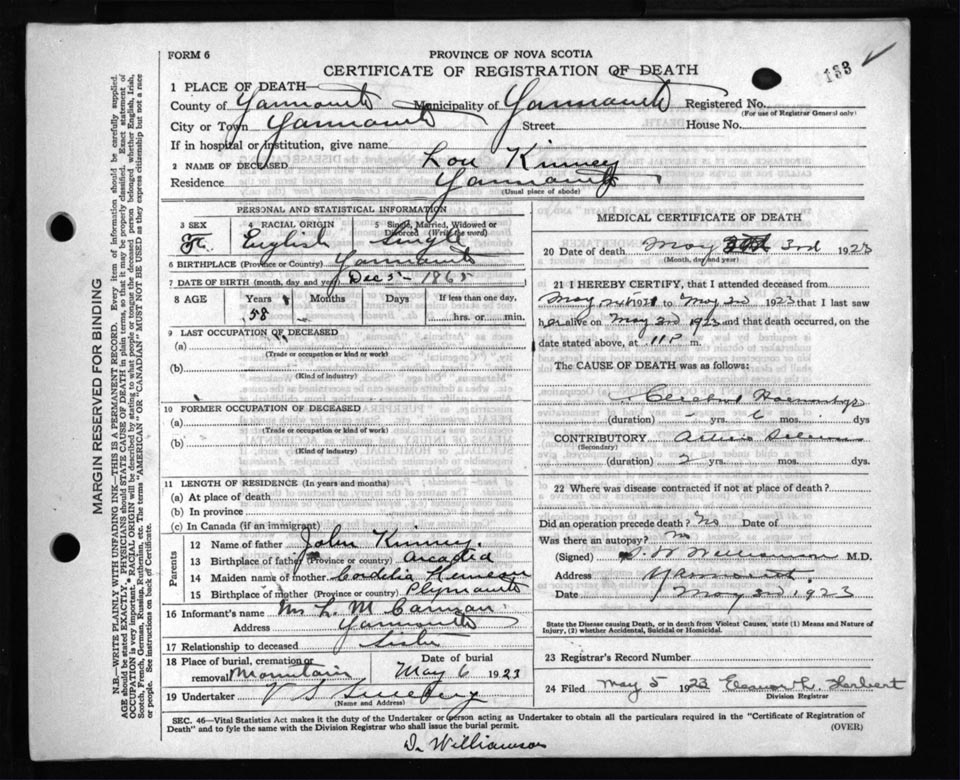 133
FORM 6
PROVINCE OF NOVA SCOTIA
CERTIFICATE OF REGISTRATION OF DEATH
1 PLACE OF DEATH
County of Yarmouth Municipality of Yarmouth Registered No.
(For use of Registrar General only)
City or Town Yarmouth Street House No.
If in hospital or institution, give name
2 NAME OF DECEASED Lou Kinney
Residence Yarmouth
(Usual place of abode)
MARGIN RESERVED FOR BINDING
N.B.—WRITE PLAINLY WITH UNFADING INK—THIS IS A PERMANENT RECORD. Every item of information should be carefully supplied.
AGE should be stated EXACTLY. PHYSICIANS should STATE CAUSE OF DEATH in plain terms, so that it may be properly classified. Exact statement of
OCCUPATION is very important. RACIAL ORIGIN will be described by stating to what people or tongue the deceased person belonged whether English, Irish,
Scotch, French, German, Russian, Ruthenian, etc. The terms "AMERICAN" OR "CANADIAN" MUST NOT BE USED as they express citizenship but not a race
or people. See instructions on back of Certificate.
PERSONAL AND STATISTICAL INFORMATION
3 SEX 4 RACIAL ORIGIN 5 Single, Married, Widowed or
Divorced (Write the word)
Fe. English Single
6 BIRTHPLACE (Province or Country) Yarmouth
7 DATE OF BIRTH (month, day and year) Dec 5 - 1865
8 AGE Years Months Days If less than one day,
58 hrs. or min.
9 LAST OCCUPATION OF DECEASED
(a)
(Trade or occupation or kind or work)
(b)
(Kind of industry)
10 FORMER OCCUPATION OF DECEASED
(a)
(Trade or occupation or kind of work)
(b)
(Kind of industry)
11 LENGTH OF RESIDENCE (In years and months)
(a) At place of death
(b) In province
(c) In Canada (if an immigrant)
Parents
12 Name of father John Kinney.
13 Birthplace of father (Province or country) Arcadia
14 Maiden name of mother Cordelia
15 Birthplace of mother (Province or country) Plymouth
16 Informant's name Mrs L. M. Cannan.
Address Yarmouth
17 Relationship to deceased Sister
18 Place of burial, cremation or Date of burial
removal Mountain May 6 1923
19 Undertaker V S Sweeny
(Name and Address)
MEDICAL CERTIFICATE OF DEATH
20 Date of death May 3rd 1923
(Month, day and year)
21 I HEREBY CERTIFY, that I attended deceased from
May 19 to May 3rd 1923 that I last saw
her alive on May 3rd 1923 and that death occurred, on the
date stated above, at 11 P m.
The CAUSE OF DEATH was as follows:
Cerebral Haemorrhage
(duration) - yrs. mos. dys
CONTRIBUTORY Arterio Sclerosis
(Secondary)
(duration) 2 yrs. mos. dys.
22 Where was disease contracted if not at place of death?
Did an operation precede death? No Date of
Was there an autopsy? No
(Signed) S. W. Williamson M.D.
Address Yarmouth.
Date May 3rd, 1923
State the Disease causing Death, or in death from Violent Causes, state (1) Means and Nature of
Injury, (2) whether Accidental, Suicidal or Homicidal.
23 Registrar's Record Number
24 Filed May 5 1923 Herbert
Division Registrar
SEC. 46—Vital Statistics Act makes it the duty of the Undertaker or person acting as Undertaker to obtain all the particulars required in the "Certificate of Registration of
Death" and to fyle the same with the Division Registrar who shall issue the burial permit. (OVER)
Dr Williamson